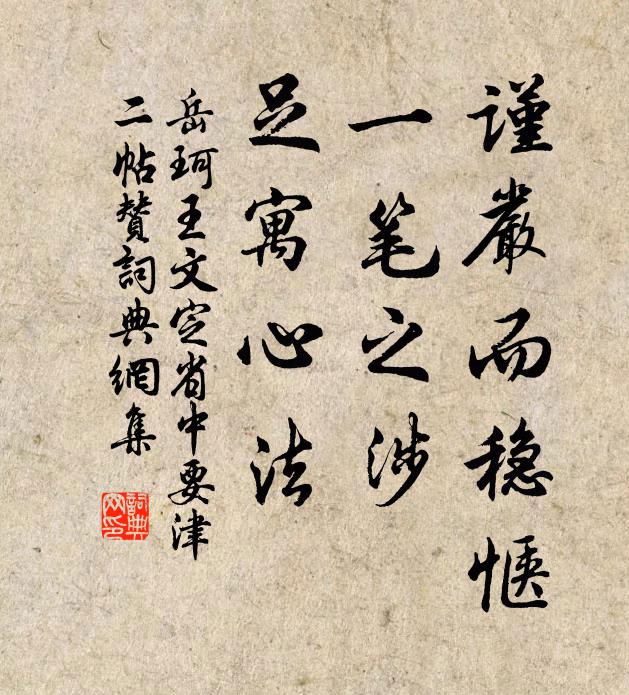 謹嚴而穩愜
一笔之涉
足寓心法
岳珂王文定省中要津
二帖贊詞典網集
詞典网印